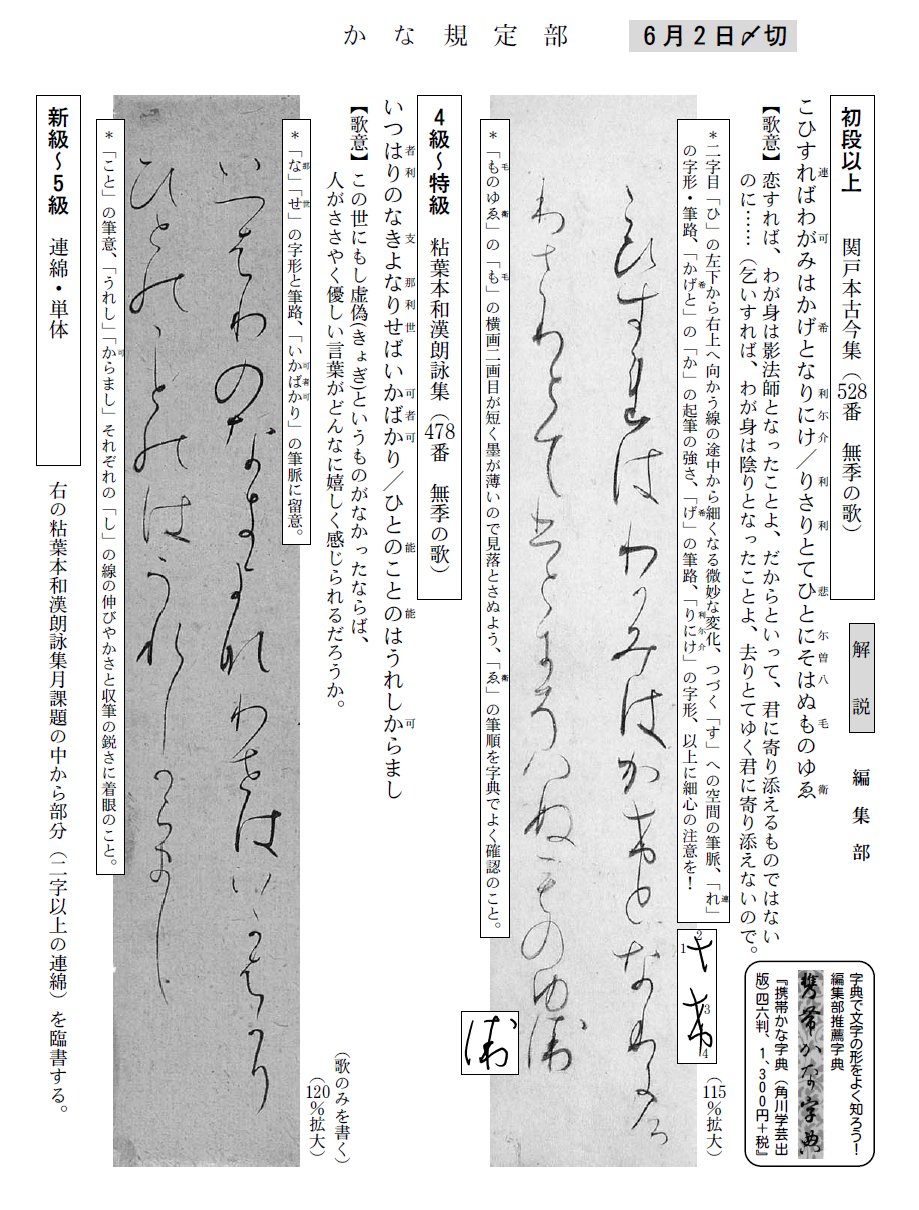 かな規定部
6月2日〆切
初段以上　関戸本古今集（528番　無季の歌）
解説
編集部
こひすればわがみはかげとなりにけ／りさりとてひとにそはぬものゆゑ
連 可 希 利 尓 介 利 利 悲 尓 曽 八 毛 衛
【歌意】恋すれば、わが身は影法師となったことよ、だからといって、君に寄り添えるものではない
のに……（乞いすれば、わが身は陰りとなったことよ、去りとてゆく君に寄り添えないので。
＊二字目「ひ」の左下から右上へ向かう線の途中から細くなる微妙な変化、つづく「す」への空間の筆脈、「れ連」
の字形・筆路、「かげ希と」の「か」の起筆の強さ、「げ希」の筆路、「り利に尓け介」の字形、以上に細心の注意を！
1 2 3 4
（115％拡大）
こひすればわがみはかげとなりにけ
りさりとてひとにそはぬものゆゑ
＊「も毛のゆゑ衛」の「も毛」の横画二画目が短く墨が薄いので見落とさぬよう、「ゑ衛」の筆順を字典でよく確認のこと。
衛
字典で文字の形をよく知ろう！
編集部推薦字典
携帯かな字典
『携帯かな字典（角川学芸出
版）四六判、1、300円＋税』
4級～特級　粘葉本和漢朗詠集（478番　無季の歌）
いつはりのなきよなりせばいかばかり／ひとのことのはうれしからまし
者 利 支 那 利 世 可 者 可 能 能 可
【歌意】この世にもし虚偽(きょぎ)というものがなかったならば、
人がささやく優しい言葉がどんなに嬉しく感じられるだろうか。
（歌のみを書く）
（120％拡大）
＊「な那」「せ世」の字形と筆路、「いか可ば者か可り」の筆脈に留意。
いつはりのなきよなりせばいかばかり
ひとのことのはうれしからまし
＊「こと」の筆意、「うれし」「か可らまし」それぞれの「し」の線の伸びやかさと収筆の鋭さに着眼のこと。
新級～5級　連綿・単体
右の粘葉本和漢朗詠集月課題の中から部分（二字以上の連綿）を臨書する。